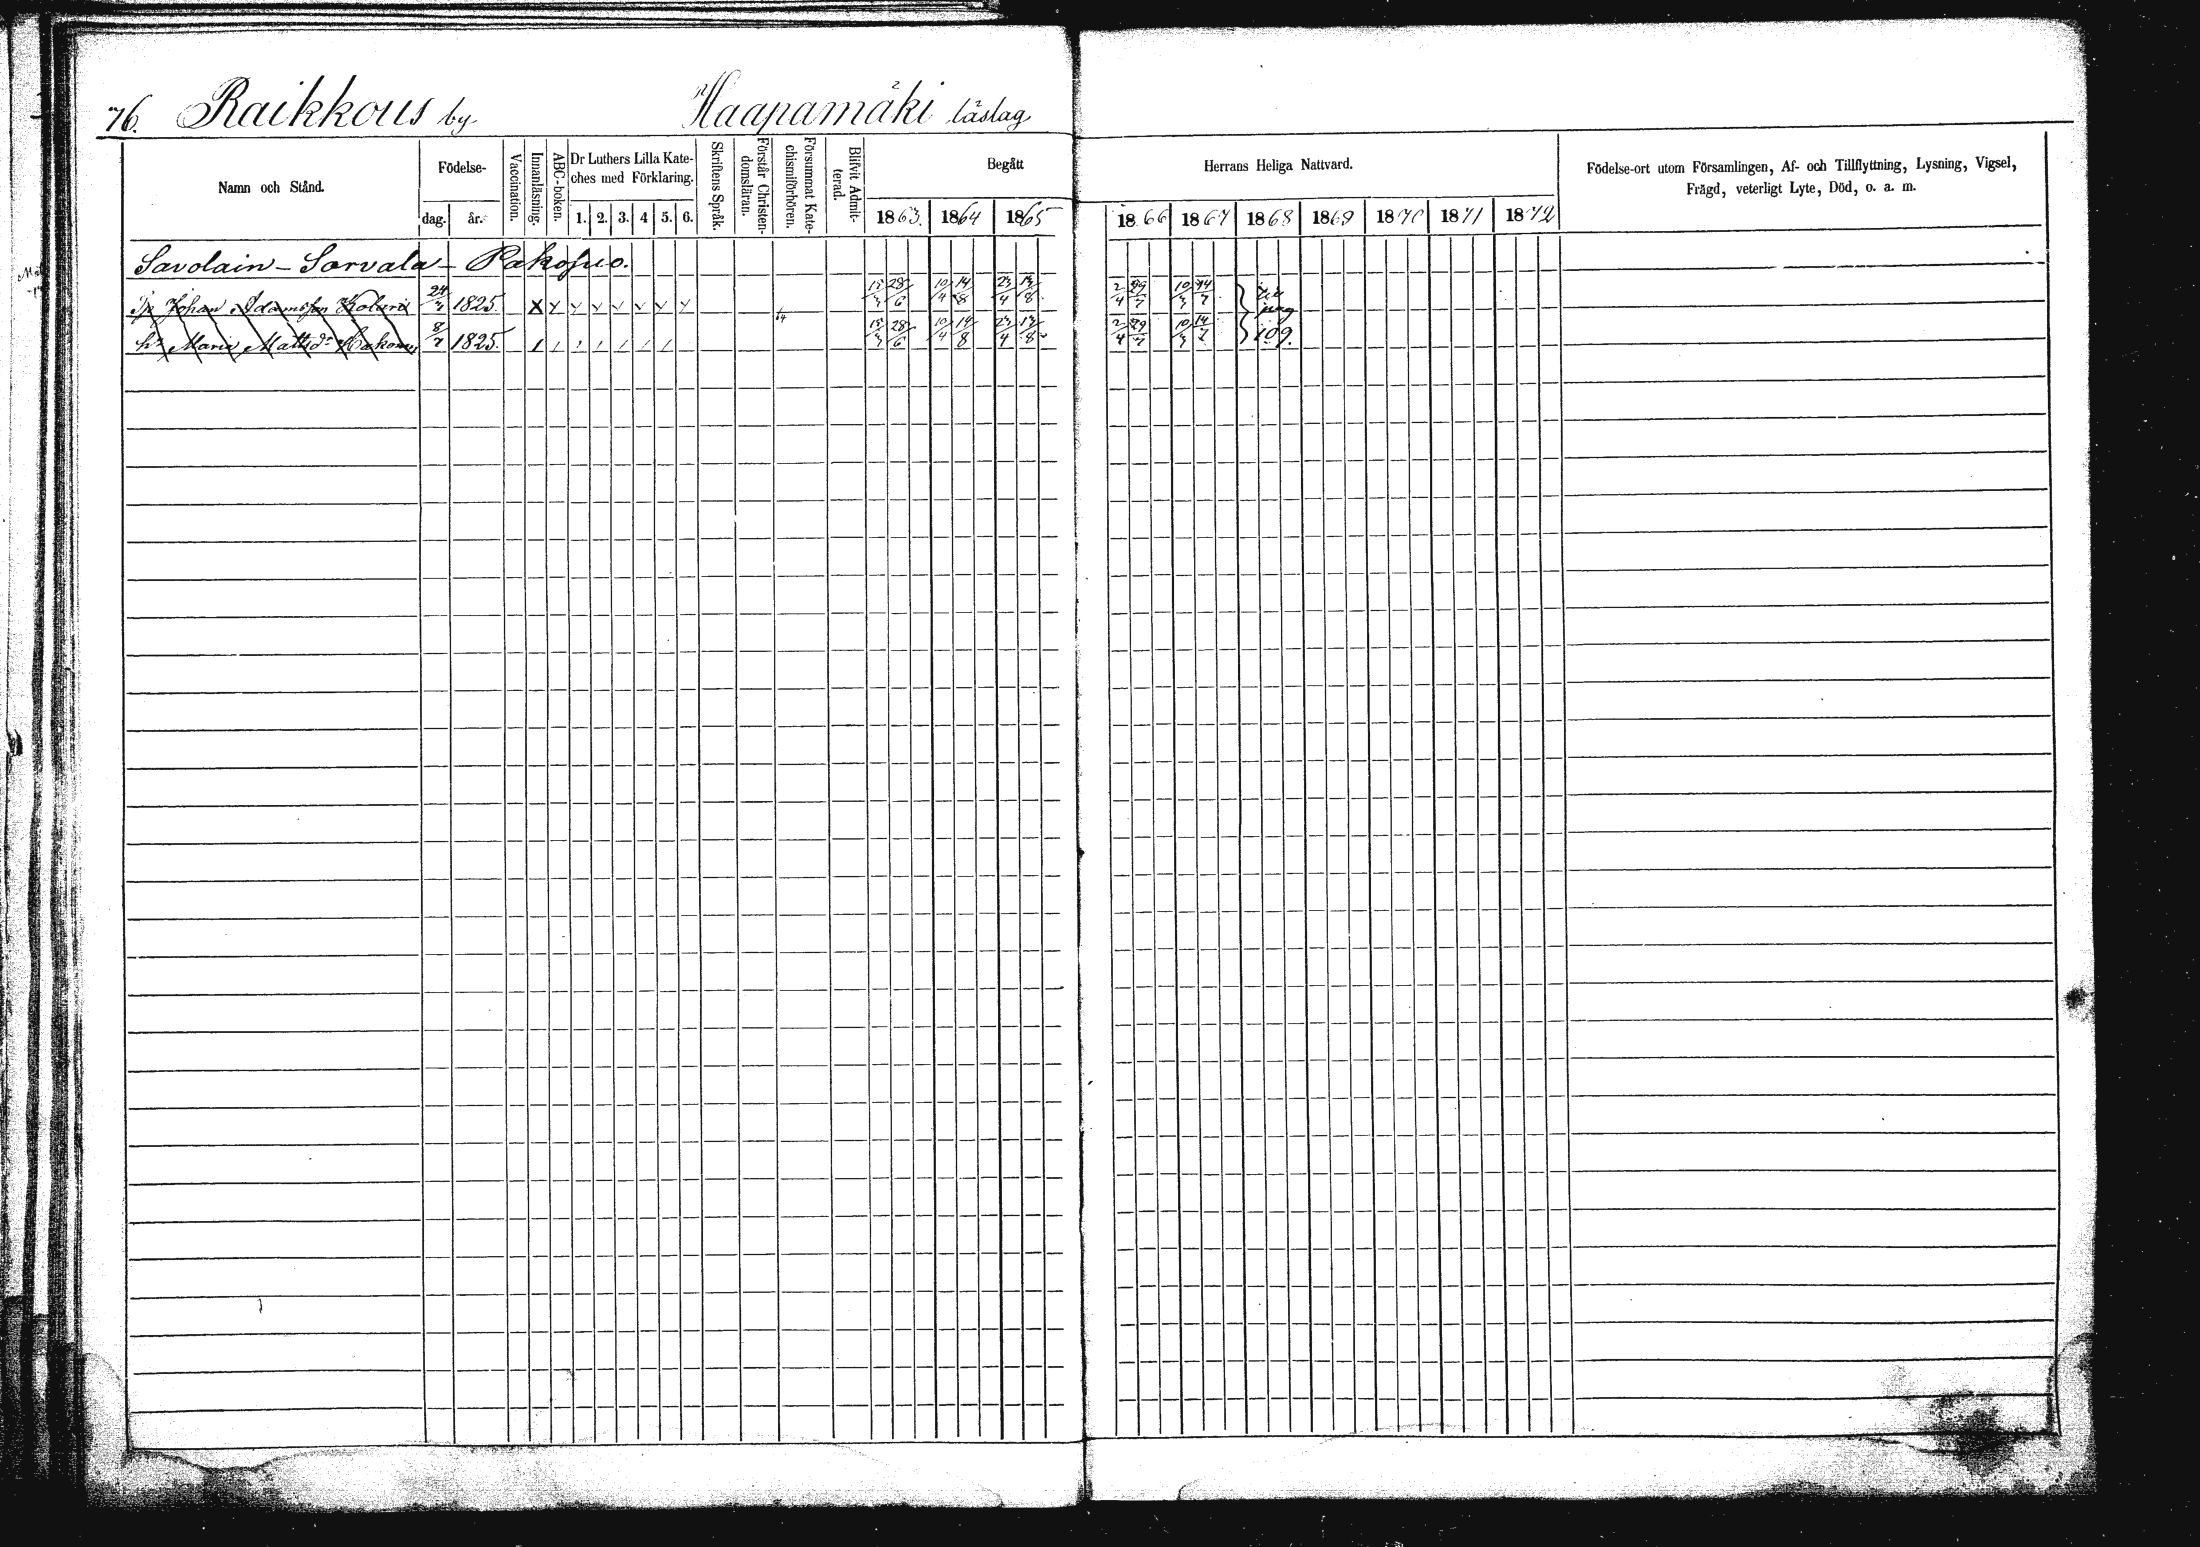 76. Raikkous by Haapamäki läslag
Namn och Stånd. Födelse- dag. år. Vaccination. Innanläsning. ABC-boken. Dr Luthers Lilla Kate-ches med Förklaring. 1. 2. 3. 4 5. 6. Skriftens Språk. Förstår Christen-domsläran. Försummat Kate-chismiförhören. Blifvit Admit-terad. Begått Herrans Heliga Nattvard. Födelse-ort utom Församlingen, Af- och Tillflyttning, Lysning, Vigsel, Frägd, veterligt Lyte, Död, o. a. m.
1863. 1864 1865 1866 1867 1868 1869 1870 1871 1872
Savolain - Sorvala - Pakosuo.
Johan Adamsson 24/7 1825 X 28/6 10/4 14/8 23/4 13/8 2/4 29/7 10/3 14/7 pag
h: Maria Mattsdr 8/7 1825. 28/6 10/4 14/8 23/4 13/8 2/4 29/7 10/3 14/7 109.